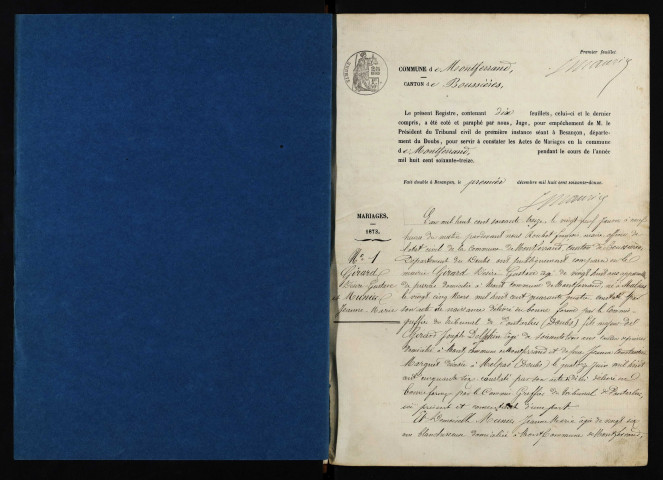 Premier feuillet
COMMUNE de Montferrand,
CANTON de Boussières,
Le présent Registre, contenant dix feuillets, celui-ci et le dernier
compris, a été coté et paraphé par nous, Juge, pour empêchement de M. le
Président du Tribunal civil de première instance séant à Besançon, départe-
ment du Doubs, pour servir à constater les Actes de Mariages en la commune
de Montferrand, pendant le cours de l'année
mil huit cent soixante-treize.
Fait double à Besançon, le premier décembre mil huit cent soixante-douze.
MARIAGES.
1873.
N° 1
Girard
Gustave
et
Jeanne-Marie
L'an mil huit cent soixante treize le vingt janvier à
heures du matin pardevant nous maire officier de
l'état civil de la commune de Montferrand, canton de Boussières
Département du Doubs ont publiquement comparu en la
mairie Girard Gustave âgé de vingt huit ans
de pierre domicilié à commune de Montferrand, né à Malpas
le vingt cinq Mars mil huit cent quarante quatre constaté par
son acte de naissance délivré en bonne forme par le Commis
greffier du tribunal de Pontarlier (Doubs) fils majeur de
Girard Joseph Delphin âgé de soixante trois ans
domicilié à commune de Montferrand et de feue Jeanne
Marguet décédée à Malpas (Doubs) le quatorze juin mil huit
cent cinquante constaté par son acte de décès délivré en
bonne forme par le Commis Greffier du tribunal de Pontarlier
ici présent et consentant d'une part
Et Demoiselle Jeanne Marie âgée de vingt six
ans blanchisseuse domiciliée à Commune de Montferrand,